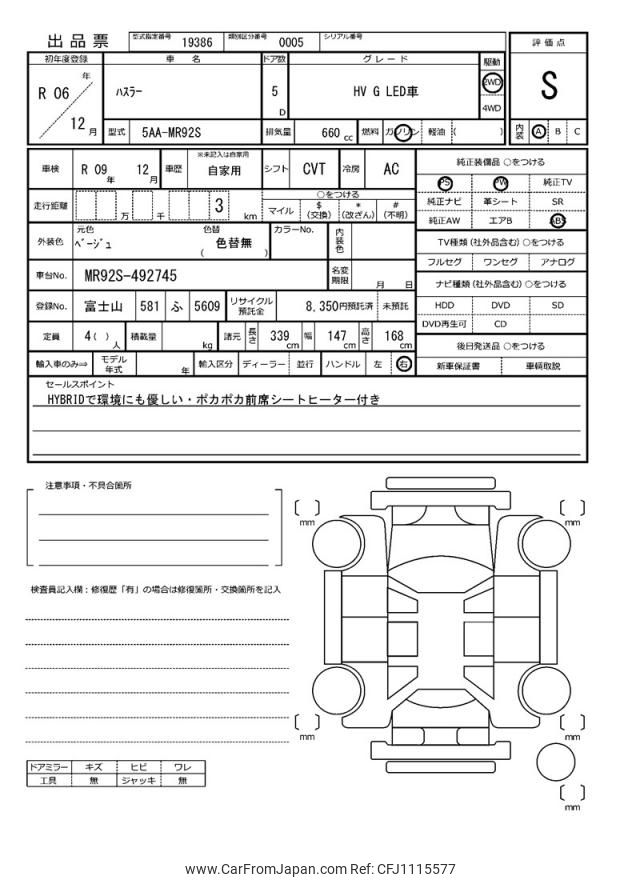 出品票 型式指定番号 19386 類別区分番号 0005 シリアル番号
評価点
S
初年度登録 車名 ドア数 グレード 駆動
R 06 年 12 月
ハスラー 5 D HV G LED車 2WD 4WD
型式 5AA-MR92S 排気量 660 cc 燃料 ガソリン 軽油 ( ) 内装 A B C
車検 R 09 年 12 月 車歴 ※未記入は自家用 自家用 シフト CVT 冷房 AC
走行距離 万 千 3 km ○をつける
マイル $(交換) *(改ざん) #(不明)
外装色 元色 ベージュ 色替 色替無 ( ) カラーNo. 内装色
車台No. MR92S-492745 名変期限 月 日
登録No. 富士山 581 ふ 5609 リサイクル預託金 8,350円預託済 未預託
定員 4( ) 人 積載量 kg 諸元 長さ 339 cm 幅 147 cm 高さ 168 cm
輸入車のみ⇒ モデル年式 年 輸入区分 ディーラー 並行 ハンドル 左 右
純正装備品 ○をつける
PS PW 純正TV
純正ナビ 革シート SR
純正AW エアB ABS
TV種類(社外品含む)○をつける
フルセグ ワンセグ アナログ
ナビ種類(社外品含む)○をつける
HDD DVD SD
DVD再生可 CD
後日発送品 ○をつける
新車保証書 車輌取説
セールスポイント
HYBRIDで環境にも優しい・ポカポカ前席シートヒーター付き
注意事項・不具合箇所
検査員記入欄:修復歴「有」の場合は修復箇所・交換箇所を記入
ドアミラー キズ ヒビ ワレ
工具 無 ジャッキ 無
[ ] mm
[ ] mm
[ ] mm
[ ] mm
[ ] mm
www.CarFromJapan.com Ref: CFJ1115577